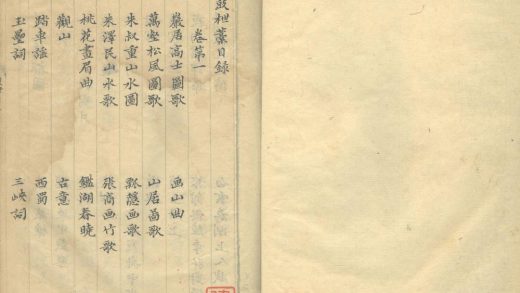 鼓枻藁目錄
卷第一
巖居高士圖歌 画山曲
萬壑松風圖歌 山居啚歌
朱叔重山水圖 瓢隱画歌
朱澤民山水歌 張商画竹歌
桃花畫眉曲 鑑湖春曉
觀山 古意
踏車謠 西蜀
玉壘詞 三峽詞